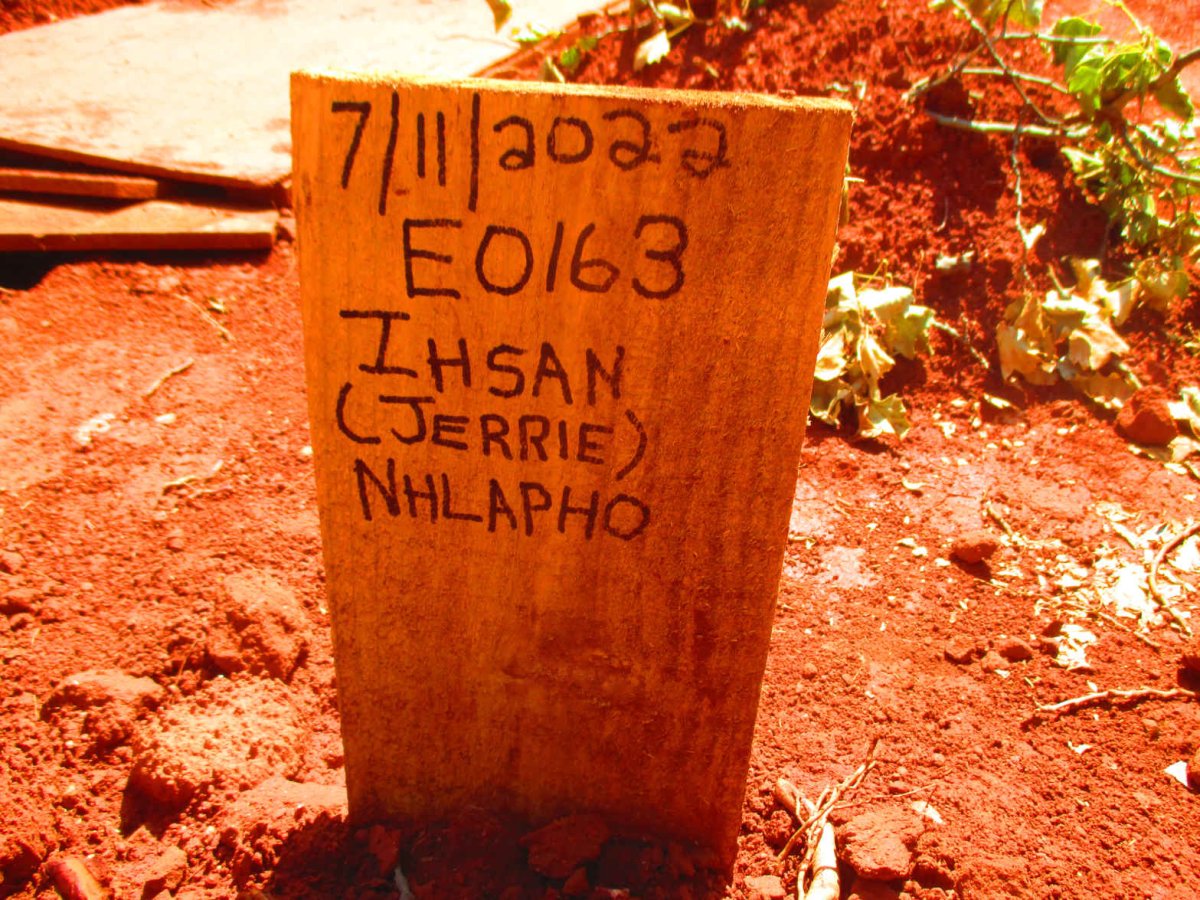 7/11/2022
E0163
IHSAN
(JERRIE)
NHLAPHO